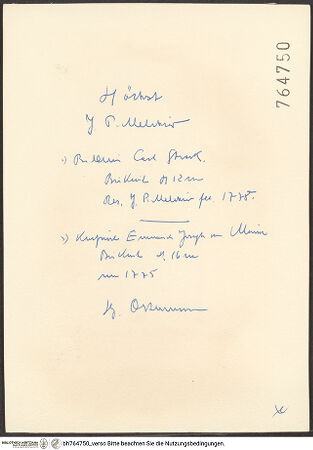 764750
Höchst
J. P. Melchior
1) Bildnis Carl
Biskuit H 12 cm
bez. J. P. Melchior fec. 1778.
2) Kurfürst Emmerich Joseph von Mainz
Biskuit H. 16 cm
um 1775
bh764750_verso Bitte beachten Sie die Nutzungsbedingungen.